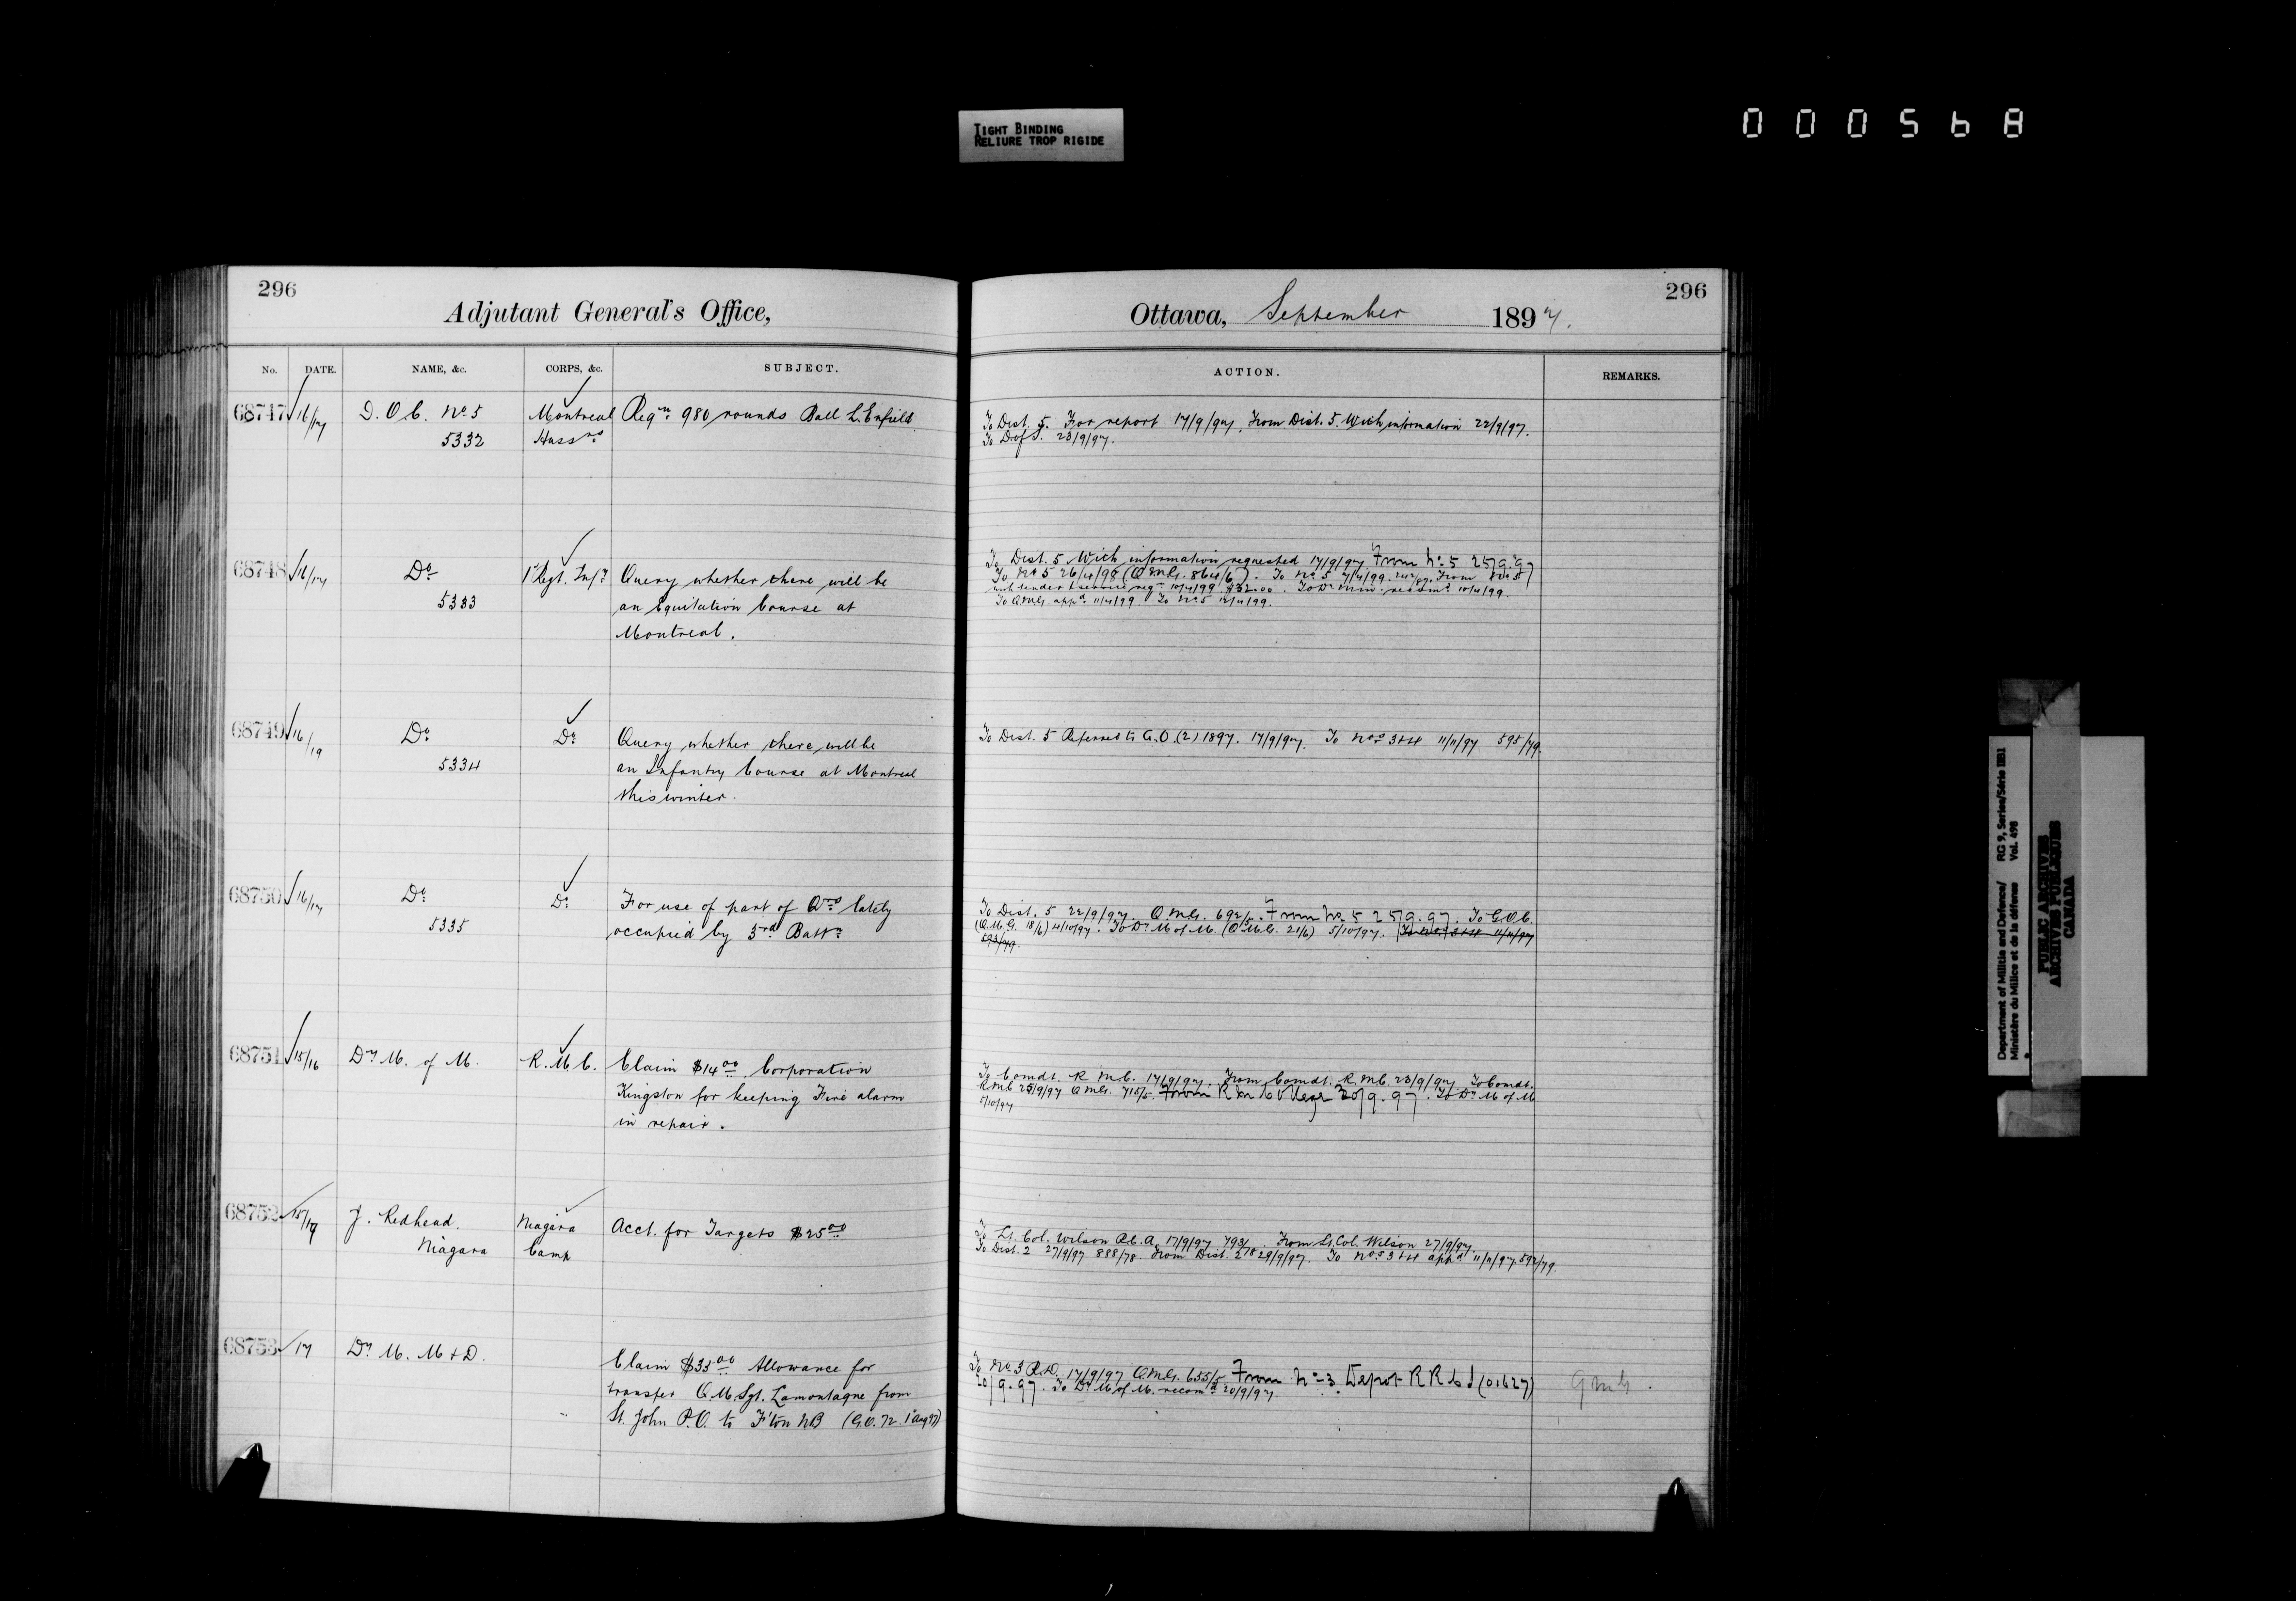 TIGHT BINDING
RELIURE TROP RIGIDE
000568
296
Adjutant General's Office,
No. DATE. NAME, &c. CORPS, &c. SUBJECT.
68747 16/17 D.O.C. No. 5 Montreal Reqn. 980 rounds Ball L. Enfield.
5332 Hussrs.
68748 16/17 Do. 1 Regt. Infy. Query whether there will be
5333 an Equitation Course at
Montreal.
68749 16/19 Do. Do. Query whether there will be
5334 an Infantry Course at Montreal
this winter.
68750 16/17 Do. Do. For use of part of Qrs. lately
5335 occupied by 3rd Battn.
68751 15/16 Dy M. of M. R.M.C. Claim $14.00 Corporation
Kingston for keeping Fire alarm
in repair.
68752 15/17 J. Redhead. Niagara Acct. for Targets $25.00
Niagara Camp
68753 17 Dy M. M & D. Claim $35.00 Allowance for
transfer Q.M. Sgt. Lamontagne from
St. John P.Q. to F'ton NB (G.O. 72. 1 Aug 97)
296
Ottawa, September 1897.
ACTION. REMARKS.
To Dist. 5. For report 17/9/97. From Dist. 5. With information 22/9/97.
To D of S. 23/9/97.
To Dist. 5 With information requested 17/9/97 From No. 5 25/9.97
To No 5 26/4/98 (Q.M.G. 864/6). To No. 5 7/4/99. From No 5
with tender 10/4/99 $32.00. To Dy Min. recomd. 10/4/99.
To Q.M.G. appd. 11/4/99. To No. 5 12/4/99.
To Dist. 5 Referred to G.O. (2) 1897. 17/9/97. To Nos. 3&4 11/11/97 595/79.
To Dist. 5 22/9/97. Q.M.G. 692/5. From No. 5 25/9.97. To G.O.C.
(Q.M.G. 18/6) 4/10/97. To Dy M of M. (Q.M.G. 21/6) 5/10/97. To Nos. 3&4 11/11/97
593/79.
To Comdt. R.M.C. 17/9/97. From Comdt. R.M.C. 23/9/97. To Comdt.
R.M.C. 25/9/97 Q.M.G. 715/5. From R M C 30/9.97. To Dy M of M
5/10/97
To Lt. Col. Wilson R.C.A. 17/9/97 793/78. From Lt. Col. Wilson 27/9/97.
To Dist. 2 27/9/97 888/78. From Dist. 2 29/9/97. To Nos 3&4 appd 11/11/97. 592/79.
To No. 3 R.D. 17/9/97 Q.M.G. 655/5 From No. 3 Depot R R C I (01627) QMG.
20/9.97. To Dy M of M. recomd. 20/9/97
Department of Militia and Defence/ RG 9, Series/Série IIB1
Ministère du Milice et de la défense Vol. 498
PUBLIC ARCHIVES
ARCHIVES PUBLIQUES
CANADA